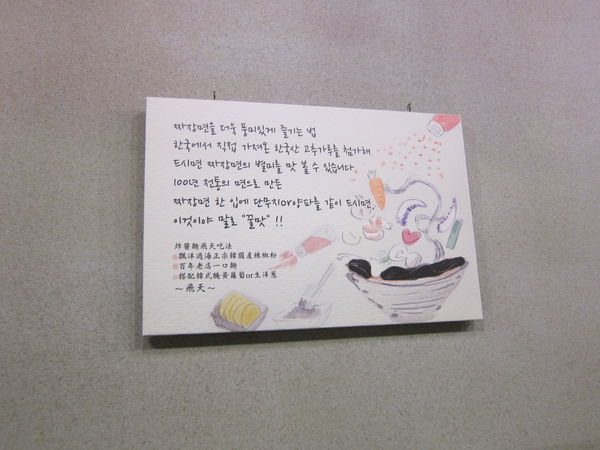 짜장면을 더욱 풍미있게 즐기는 법
한국에서 직접 가져온 한국산 고추가루를 첨가해
드시면 짜장면의 별미를 맛 볼 수 있습니다.
100년 전통의 면으로 만든
짜장면 한 입에 단무지or양파를 같이 드시면,
이것이야 말로 "꿀맛" !!
炸醬麵飛天吃法
飄洋過海正宗韓國產辣椒粉
百年老店一口麵
搭配韓式醃黃蘿蔔or生洋蔥
～飛天～